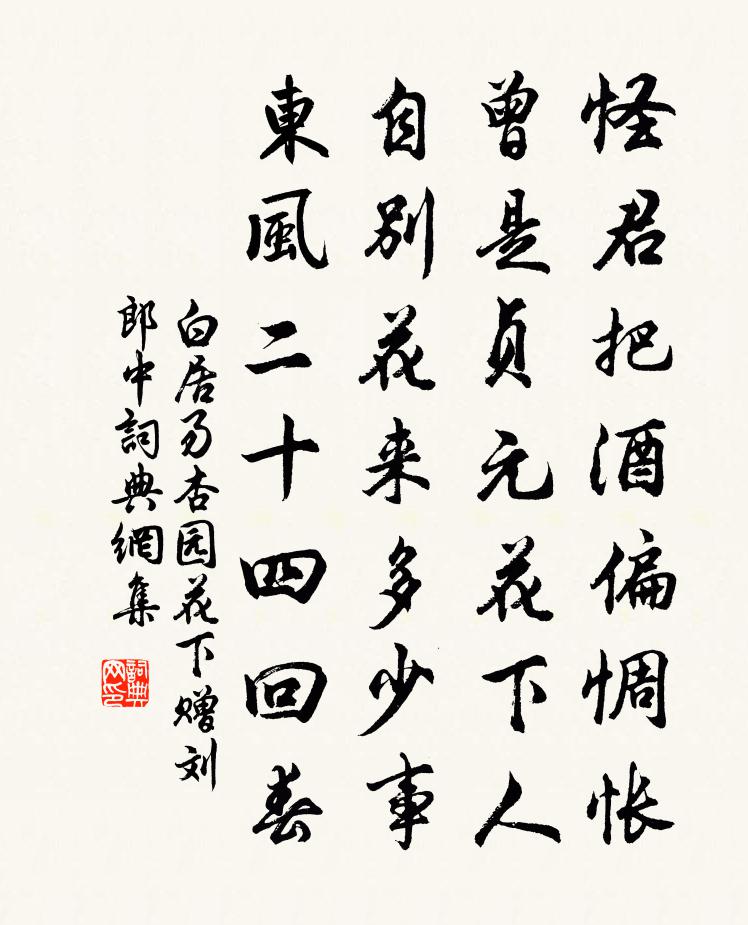 怪君把酒偏惆怅
曾是贞元花下人
自别花来多少事
東風二十四回春
白居易杏园花下赠刘
郎中詞典網集
詞典网印